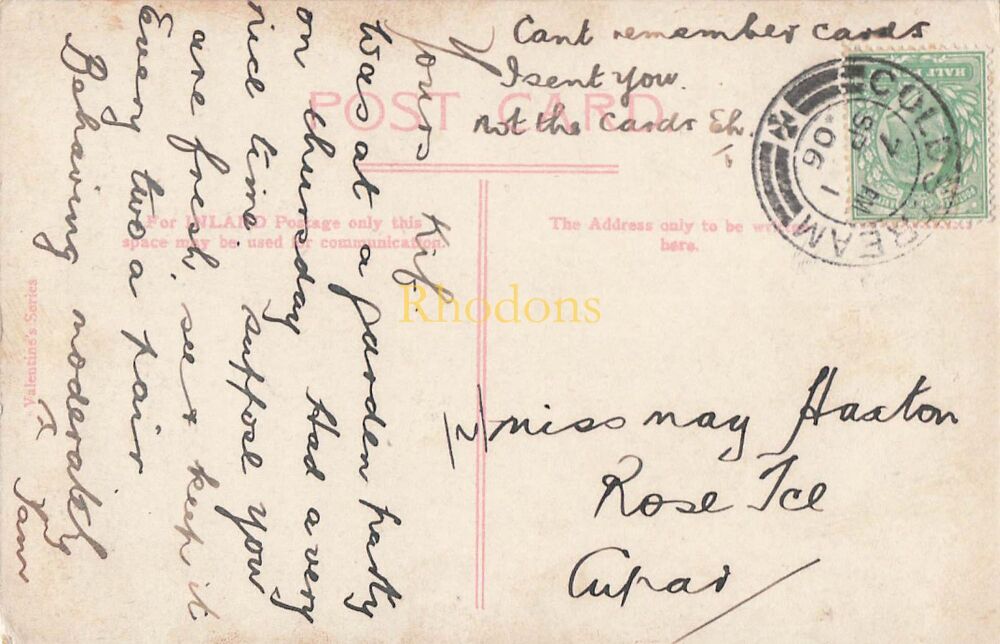 Cant remember cards
I sent you.
not the Cards Eh.
POST CARD
For INLAND Postage only this
space may be used for communication.
The Address only to be written
here.
Valentine's Series
HALF
COLDSTREAM
7
SP
06
Was at a garden party
on thursday Had a very
nice time. suppose you
are fresh, see & keep it
Every two a pair
Behaving moderately
Yours
Rhodons
miss may Haxton
Rose Tce
Cupar